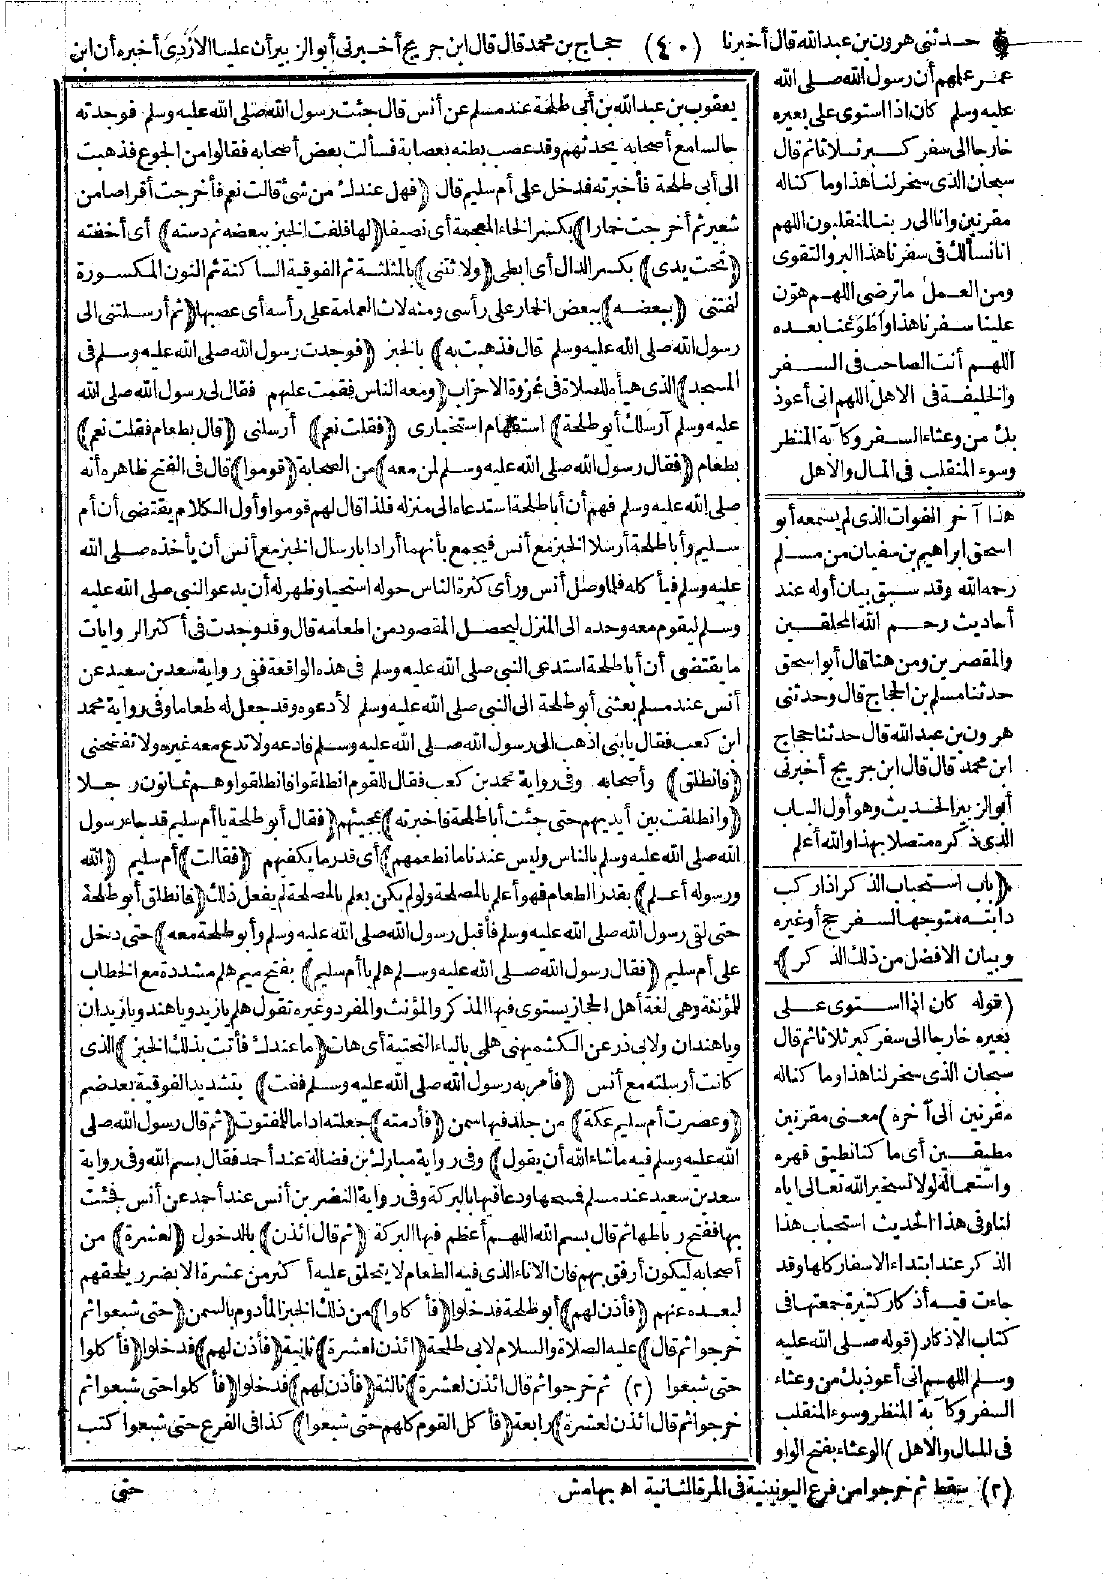 حدثنى هرون بن عبد الله قال أخبرنا (٤٠) حجاج بن محمد قال قال ابن جريج أخبرنى أبو الزبير أن عليا الازدى أخبره أن ابن
عمر علمهم أن رسول الله صلى الله
عليه وسلم كان اذا استوى على بعيره
خارجا الى سفر كبر ثلاثا ثم قال
سبحان الذى سخر لنا هذا وما كنا له
مقرنين وانا الى ربنا لمنقلبون اللهم
انا نسألك فى سفرنا هذا البر والتقوى
ومن العمل ما ترضى اللهم هوّن
علينا سفرنا هذا واطو عنا بعده
اللهم أنت الصاحب فى السفر
والخليفة فى الاهل اللهم انى أعوذ
بك من وعثاء السفر وكآبة المنظر
وسوء المنقلب فى المال والاهل
هذا آخر الفوات الذى لم يسمعه أبو
اسحق ابراهيم بن سفيان من مسلم
رحمه الله وقد سبق بيان أوله عند
أحاديث رحم الله المحلقين
والمقصرين ومن هنا قال أبو اسحق
حدثنا مسلم بن الحجاج قال وحدثنى
هرون بن عبد الله قال حدثنا حجاج
ابن محمد قال قال ابن جريج أخبرنى
أبو الزبير الحديث وهو أول الباب
الذى ذكره متصلا بهذا والله أعلم
(باب استحباب الذكر اذا ركب
دابته متوجها لسفر حج أو غيره
وبيان الافضل من ذلك الذكر)
(قوله كان اذا استوى على
بعيره خارجا الى سفر كبر ثلاثا ثم قال
سبحان الذى سخر لنا هذا وما كنا له
مقرنين الى آخره) معنى مقرنين
مطيقين أى ما كنا نطيق قهره
واستعماله لولا تسخير الله تعالى اياه
لنا وفى هذا الحديث استحباب هذا
الذكر عند ابتداء الاسفار كلها وقد
جاءت فيه أذكار كثيرة جمعتها فى
كتاب الاذكار (قوله صلى الله عليه
وسلم اللهم انى أعوذ بك من وعثاء
السفر وكآبة المنظر وسوء المنقلب
فى المال والاهل) الوعثاء بفتح الواو
يعقوب بن عبد الله بن أبى طلحة عند مسلم عن أنس قال جئت رسول الله صلى الله عليه وسلم فوجدته
جالسا مع أصحابه يحدثهم وقد عصب بطنه بعصابة فسألت بعض أصحابه فقالوا من الجوع فذهبت
الى أبى طلحة فأخبرته فدخل على أم سليم قال (فهل عندك من شئ قالت نعم فأخرجت أقراصا من
شعير ثم أخرجت خمارا) بكسر الخاء المعجمة أى نصيفا (لها فلفت الخبز ببعضه ثم دسته) أى أخفته
(تحت يدى) بكسر الدال أى ابطى (ولاثتنى) بالمثلثة ثم الفوقية الساكنة ثم النون المكسورة
لفتنى (ببعضه) ببعض الخمار على رأسى ومنه لاث العمامة على رأسه أى عصبها (ثم أرسلتنى الى
رسول الله صلى الله عليه وسلم قال فذهبت به) بالخبز (فوجدت رسول الله صلى الله عليه وسلم فى
المسجد) الذى هيأه للصلاة فى غزوة الاحزاب (ومعه الناس فقمت عليهم فقال لى رسول الله صلى الله
عليه وسلم آرسلك أبو طلحة) استفهام استخبارى (فقلت نعم) أرسلنى (قال بطعام فقلت نعم)
بطعام (فقال رسول الله صلى الله عليه وسلم لمن معه) من الصحابة (قوموا) قال فى الفتح ظاهره أنه
صلى الله عليه وسلم فهم أن أبا طلحة استدعاه الى منزله فلذا قال لهم قوموا وأول الكلام يقتضى أن أم
سليم وأبا طلحة أرسلا الخبز مع أنس فيجمع بأنهما أرادا بارسال الخبز مع أنس أن يأخذه صلى الله
عليه وسلم فيأكله فلما وصل أنس ورأى كثرة الناس حوله استحيا وظهر له أن يدعو النبى صلى الله عليه
وسلم ليقوم معه وحده الى المنزل ليحصل المقصود من اطعامه قال وقد وجدت فى أكثر الروايات
ما يقتضى أن أبا طلحة استدعى النبى صلى الله عليه وسلم فى هذه الواقعة ففى رواية سعد بن سعيد عن
أنس عند مسلم بعثنى أبو طلحة الى النبى صلى الله عليه وسلم لأدعوه وقد جعل له طعاما وفى رواية محمد
ابن كعب فقال يا بنى اذهب الى رسول الله صلى الله عليه وسلم فادعه ولا تدع معه غيره ولا تفضحنى
(فانطلق) وأصحابه وفى رواية محمد بن كعب فقال للقوم انطلقوا فانطلقوا وهم ثمانون رجلا
(وانطلقت بين أيديهم حتى جئت أبا طلحة فاخبرته) بمجيئهم (فقال أبو طلحة يا أم سليم قد جاء رسول
الله صلى الله عليه وسلم بالناس وليس عندنا ما نطعمهم) أى قدر ما يكفيهم (فقالت) أم سليم (الله
ورسوله أعلم) بقدر الطعام فهو أعلم بالمصلحة ولو لم يكن يعلم بالمصلحة لم يفعل ذلك (فانطلق أبو طلحة
حتى لقى رسول الله صلى الله عليه وسلم فأقبل رسول الله صلى الله عليه وسلم وأبو طلحة معه) حتى دخل
على أم سليم (فقال رسول الله صلى الله عليه وسلم هلم يا أم سليم) بفتح ميم هلم مشددة مع الخطاب
للمؤنثة وهى لغة أهل الحجاز يستوى فيها المذكر والمؤنث والمفرد وغيره تقول هلم يا زيد ويا هند ويا زيدان
ويا هندان ولابى ذر عن الكشميهنى هلمى بالياء التحتية أى هات (ما عندك فأتت بذلك الخبز) الذى
كانت أرسلته مع أنس (فأمر به رسول الله صلى الله عليه وسلم ففت) بتشديد الفوقية بعد ضم
(وعصرت أم سليم عكة) من جلد فيها سمن (فأدمته) جعلته اداما للمفتوت (ثم قال رسول الله صلى
الله عليه وسلم فيه ما شاء الله أن يقول) وفى رواية مبارك بن فضالة عند أحمد فقال بسم الله وفى رواية
سعد بن سعيد عند مسلم فمسحها ودعا فيها بالبركة وفى رواية النضر بن أنس عند أحمد عن أنس فجئت
بها ففتح رباطها ثم قال بسم الله اللهم أعظم فيها البركة (ثم قال ائذن) بالدخول (لعشرة) من
أصحابه ليكون أرفق بهم فان الاناء الذى فيه الطعام لا يتحلق عليه أكثر من عشرة الا بضرر يلحقهم
لبعده عنهم (فأذن لهم) أبو طلحة فدخلوا (فأكلوا) من ذلك الخبز المأدوم بالسمن (حتى شبعوا ثم
خرجوا ثم قال) عليه الصلاة والسلام لابى طلحة (ائذن لعشرة) ثانية (فأذن لهم) فدخلوا (فأكلوا
حتى شبعوا (٢) ثم خرجوا ثم قال ائذن لعشرة) ثالثة (فأذن لهم) فدخلوا (فأكلوا حتى شبعوا ثم
خرجوا ثم قال ائذن لعشرة) رابعة (فأكل القوم كلهم حتى شبعوا) كذا فى الفرع حتى شبعوا كتب
(٢) سقط ثم خرجوا من فرع اليونينية فى المرة الثانية اه بهامش
حتى